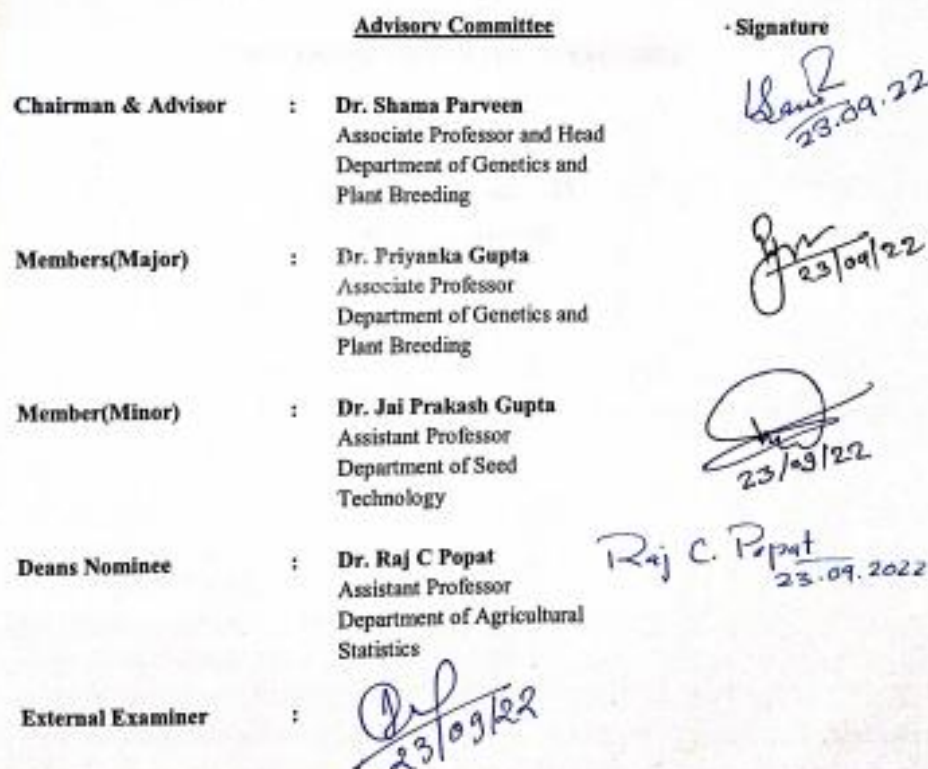 Advisory Committee - Signature
Chairman & Advisor : Dr. Shama Parveen
23.09.22
Associate Professor and Head
Department of Genetics and
Plant Breeding
Members(Major) : Dr. Priyanka Gupta
23/09/22
Associate Professor
Department of Genetics and
Plant Breeding
Member(Minor) : Dr. Jai Prakash Gupta
Assistant Professor
23/09/22
Department of Seed
Technology
Deans Nominee : Dr. Raj C Popat
Raj C. Popat
23.09.2022
Assistant Professor
Department of Agricultural
Statistics
External Examiner :
23/09/22